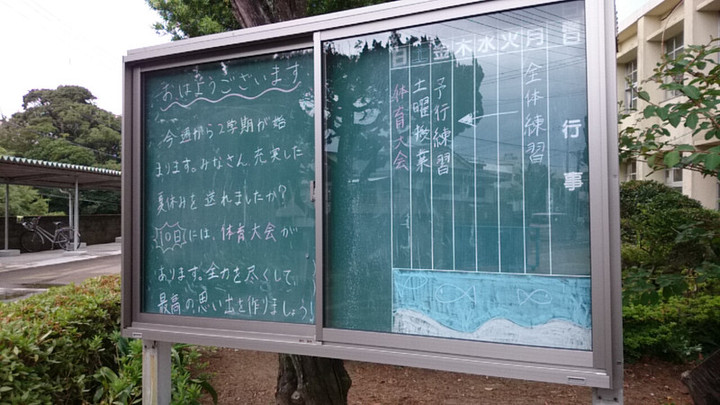 おはようございます
今週から2学期が始
まります。みなさん、充実した
夏休みを送れましたか?
10日には、体育大会が
あります。全力を尽くして、
最高の思い出を作りましょう!
行事
月 全体練習
火
水
木
金 予行練習
土 土曜授業
日 体育大会